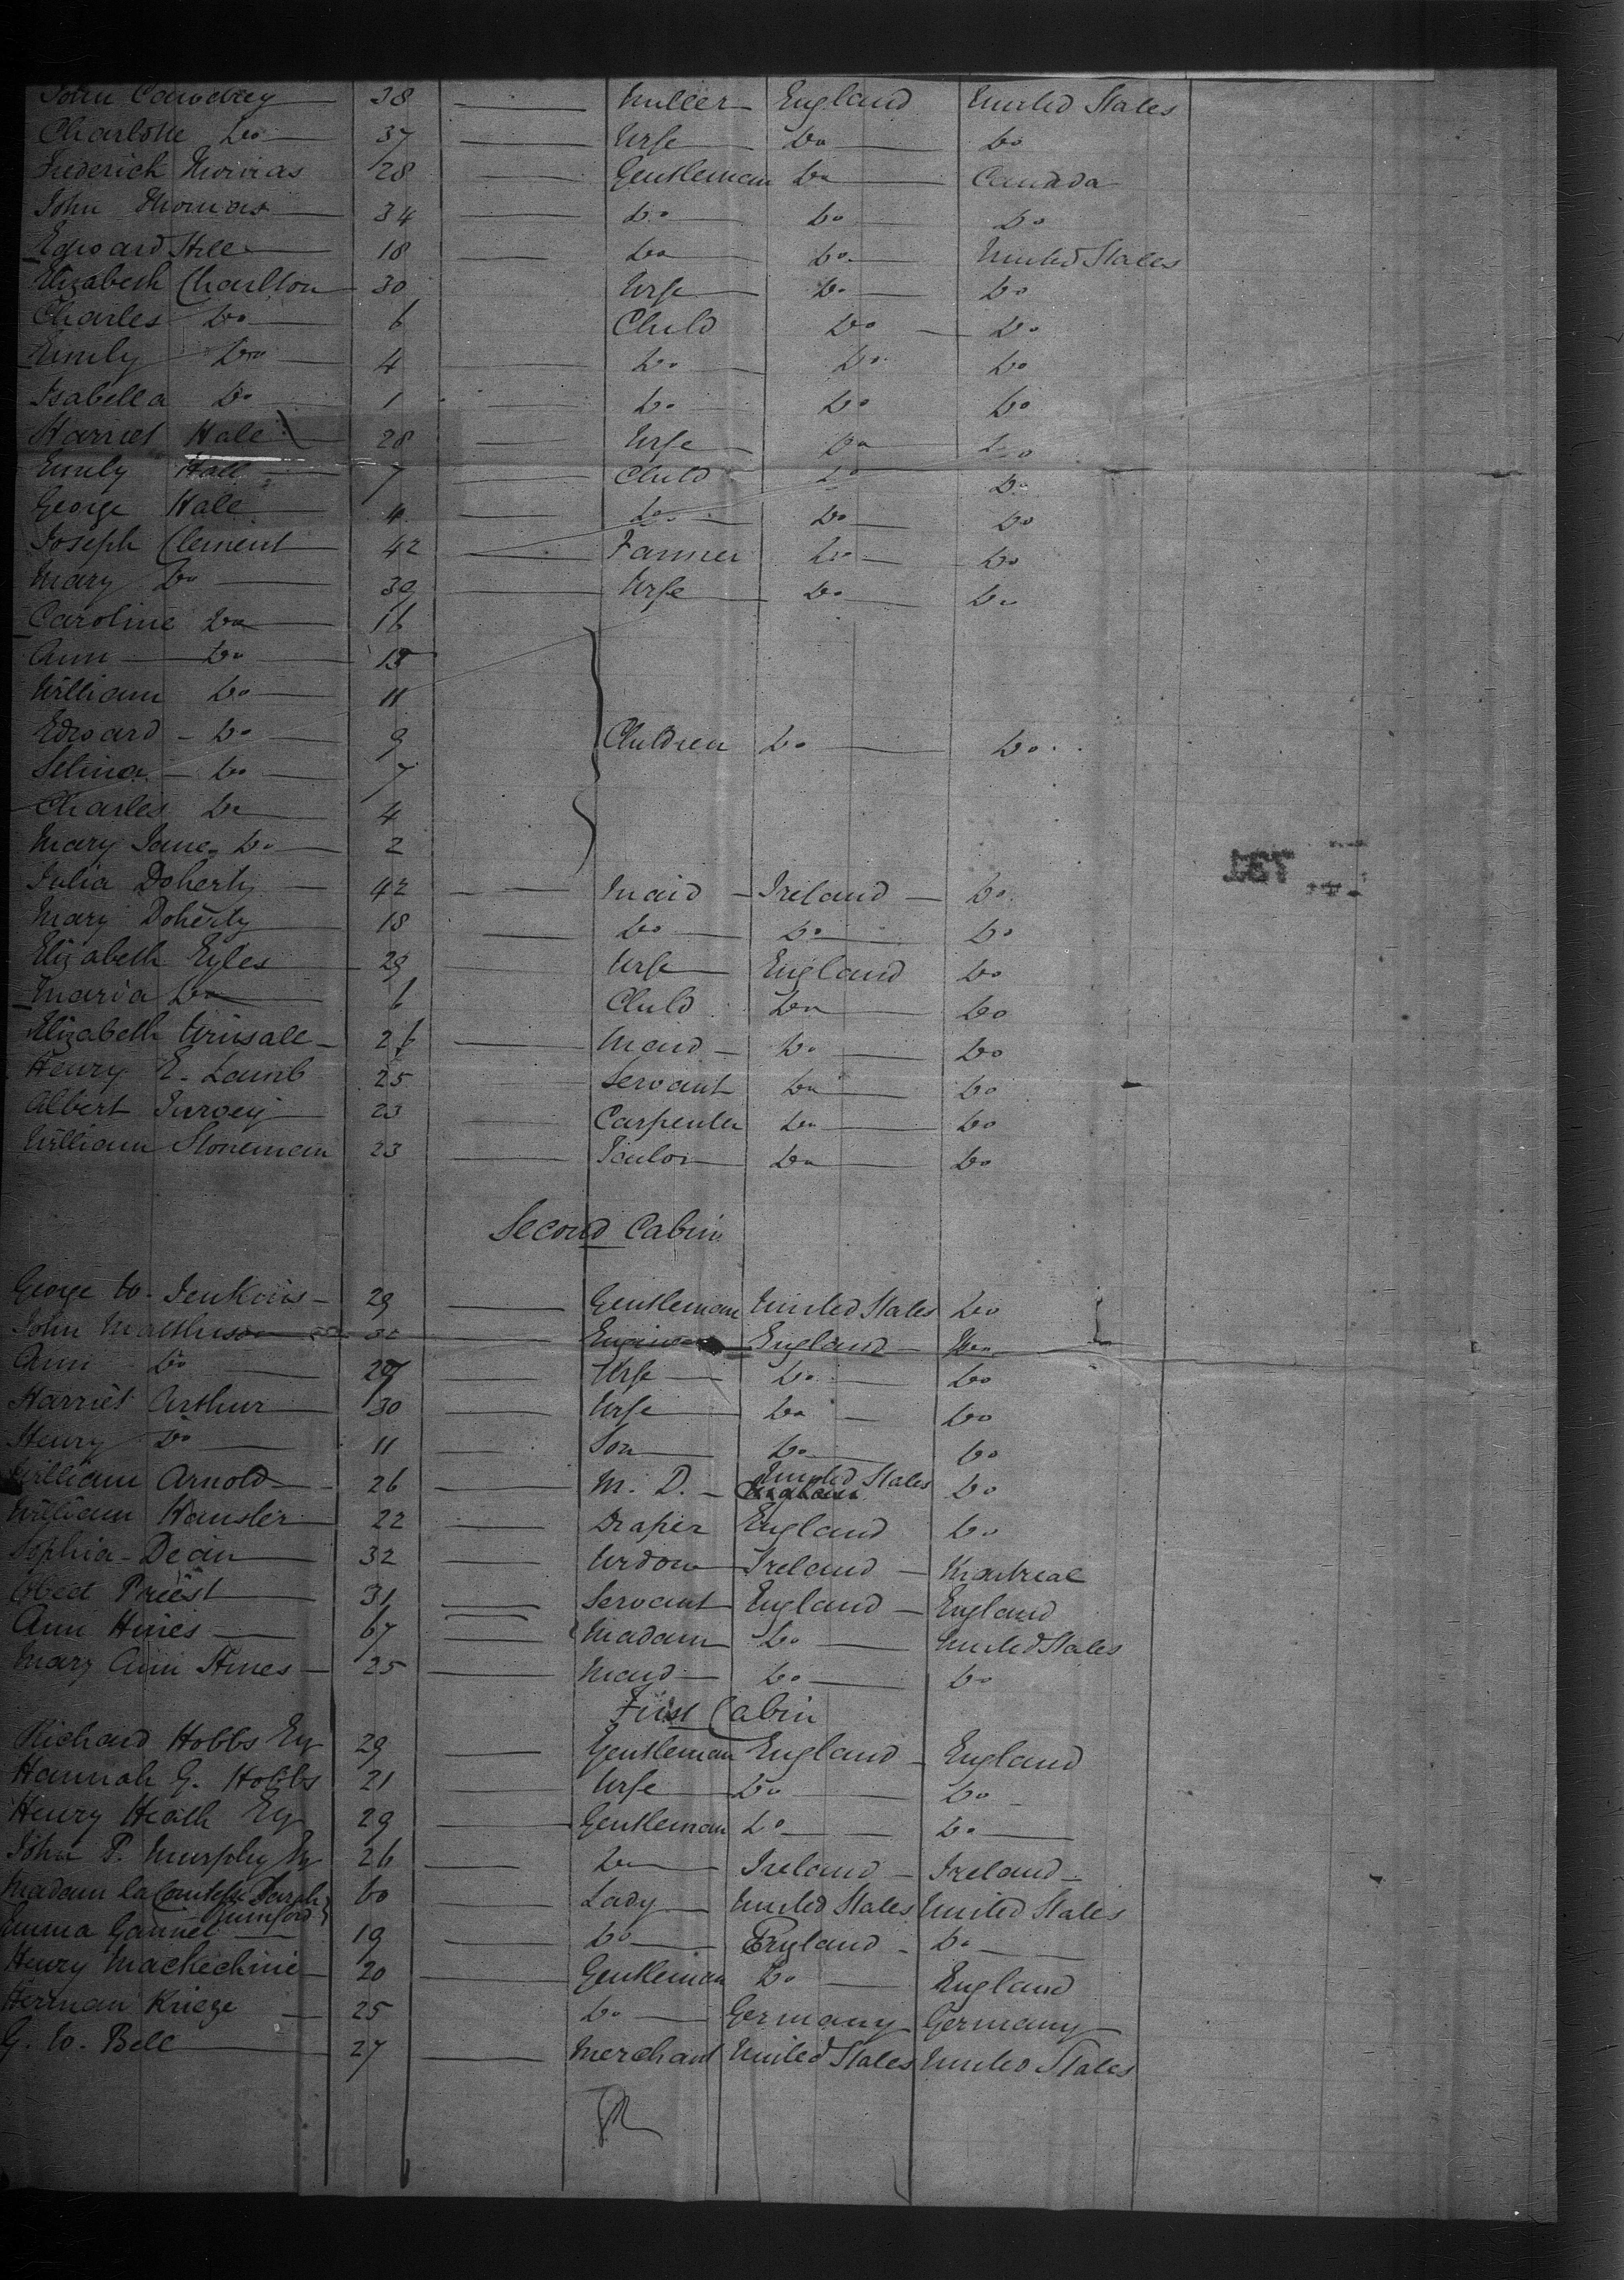 John Cowdrey 38 Miller England United States
Charlotte Do 37 Wife Do Do
Frederick Thomas 28 Gentleman Do Canada
John Thomas 34 Do Do Do
Edward Hill 18 Do Do United States
Elizabeth Charlton 30 Wife Do Do
Charles Do 6 Child Do Do
Emily Do 4 Do Do Do
Isabella Do 1 Do Do Do
Harriet Hall 28 Wife Do Do
Emily Hall 7 Child Do Do
George Hall 4 Do Do Do
Joseph Clement 42 Farmer Do Do
Mary Do 39 Wife Do Do
Caroline Do 16
Ann Do 13
William Do 11
Edward Do 9 Children Do Do
Selina Do 7
Charles Do 4
Mary Jane Do 2
Julia Doherty 42 Maid Ireland Do
Mary Doherty 18 Do Do Do
Elizabeth Eyles 29 Wife England Do
Maria Do 6 Child Do Do
Elizabeth 26 Maid Do Do
Henry E. Lamb 25 Servant Do Do
Albert 23 Carpenter Do Do
William Stoneman 23 Do Do
Second Cabin
George W. Jenkins 29 Gentleman United States Do
John Mathison England Do
Ann Do 29 Wife Do Do
Harriet Arthur 30 Wife Do Do
Henry Do 11 Son Do Do
William Arnold 26 M. D. United States Do
William Hansler 22 Draper England Do
Sophia Dean 32 Widow Ireland Montreal
Obed Priest 31 Servant England England
Ann Hines 67 Madam Do United States
Mary Ann Hines 25 Maid Do Do
First Cabin
Richard Hobbs Esq 29 Gentleman England England
Hannah G. Hobbs 21 Wife Do Do
Henry Heath Esq 29 Gentleman Do Do
John P. Murphy Esq 26 Do Ireland Ireland
Madam la Comtesse Sarah 60 Lady United States United States
Rumford
Emma Gannell 19 Do England Do
Henry 20 Gentleman Do England
Herman Kriege 25 Do Germany Germany
G. W. Bell 27 Merchant United States United States